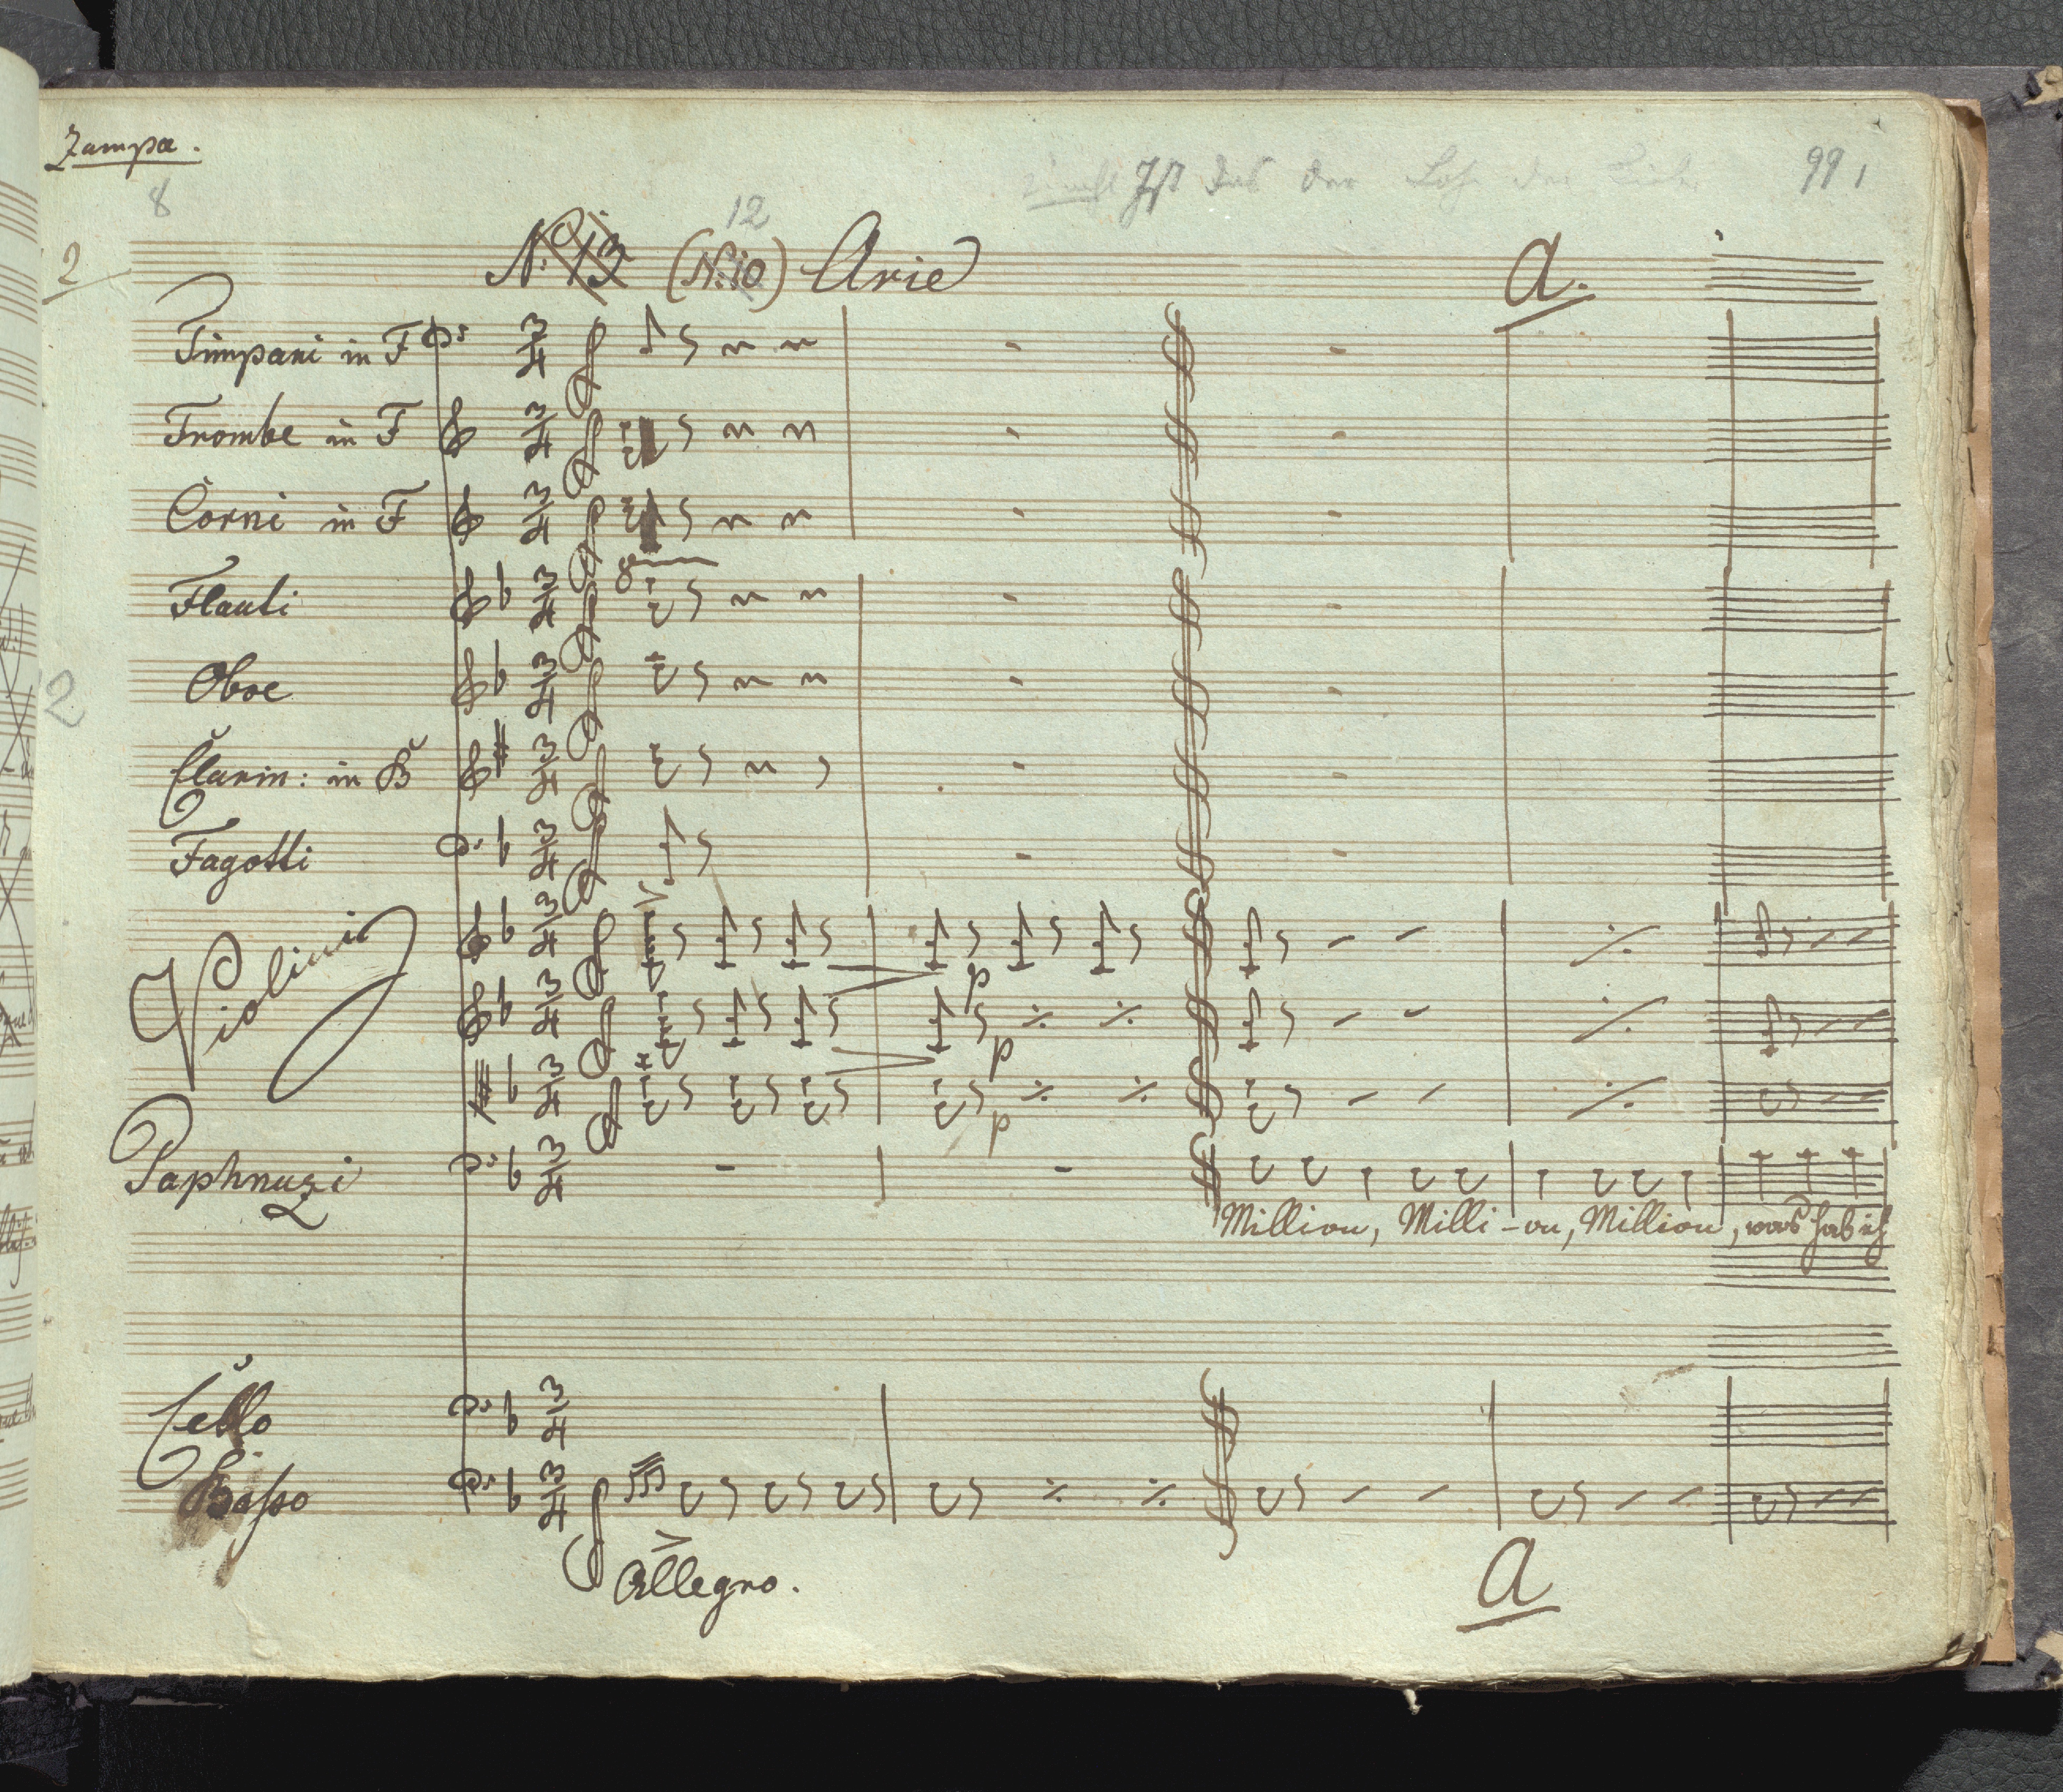 Zampa.
8
12
Ist das der
99,
2
No. 13 (No. 10) Arie
A.
Timpani in F
Trombe in F
Corni in F
8
Flauti
Oboe
2
Clarin: in B
Fagotti
Violini
p
p
p
Paphnuzi
Million, Milli-on, Million, was hab ich
Cello
Basso
Allegro.
A